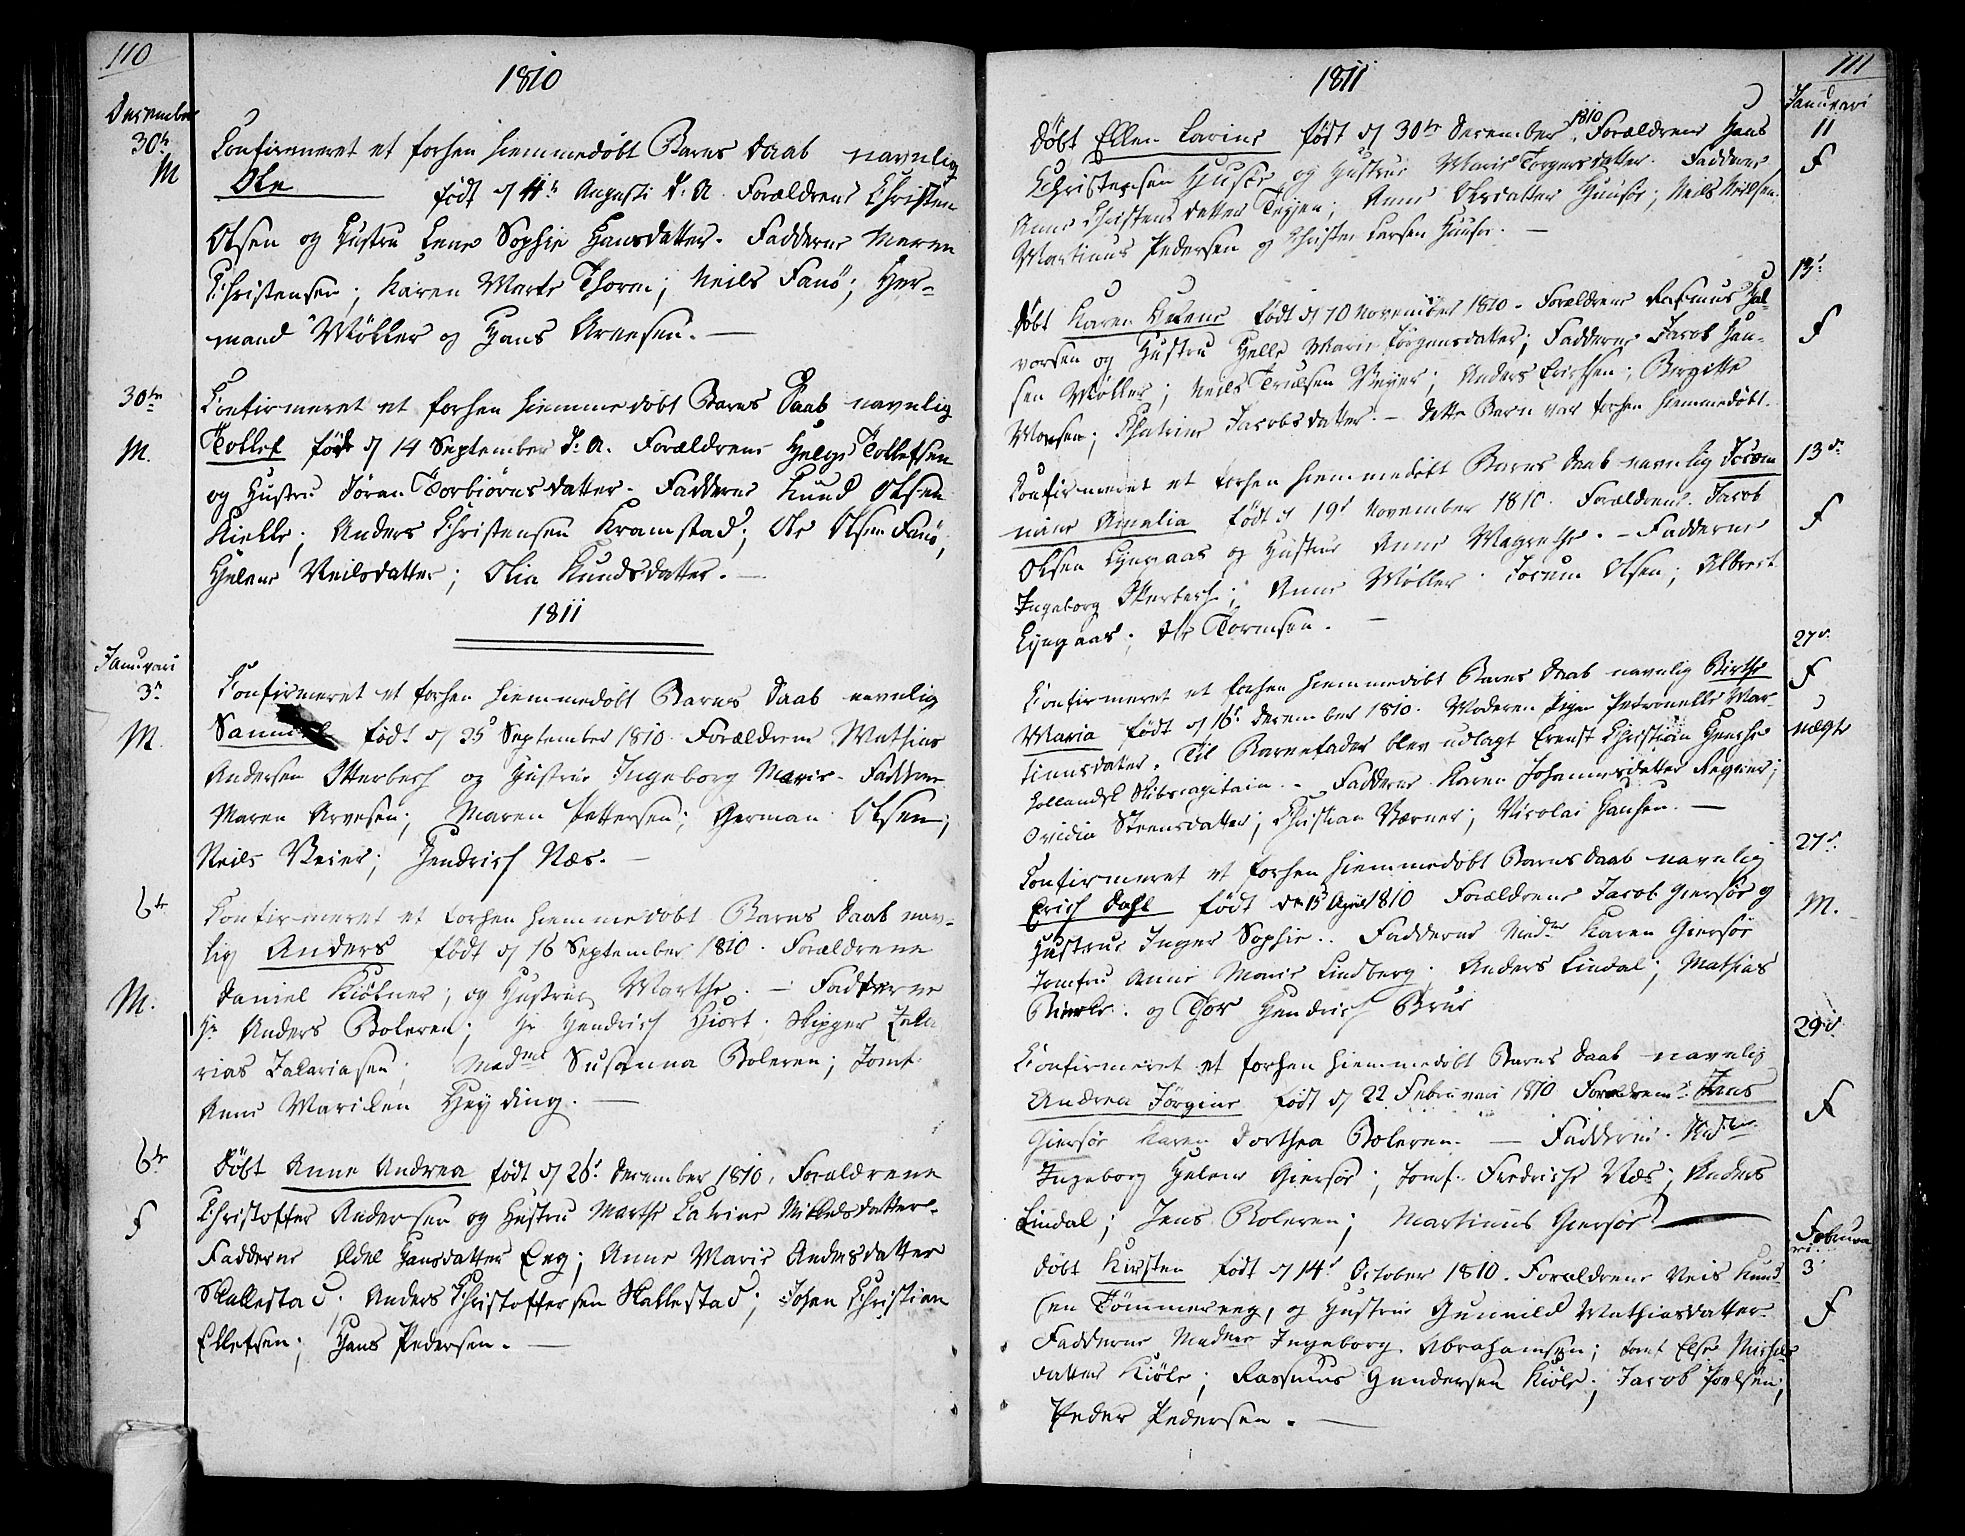 110
1810
December
30te
M
Confirmeret et forhen hiemmedøbt Barns Daab navnlig
Ole født d 4de Augusti d. A. Forældrene Christen
Olsen og Hustru Lene Sophie Hansdatter. Fadderne Maren
Christensen; Karen Marte Thorm; Neils Fanø; Her-
mand Møller og Hans Arvesen. —
30te
M.
Confirmeret et forhen hiemmedøbt Barns Daab navnlig
Tollef født d 14 September d. A. Forældrene Helge Tollefsen
og Hustru Jøran Torbiørnsdatter. Fadderne Knud Olsen
Kielle; Anders Christensen Kramstad; Ole Olsen Fanø;
Helene Neilsdatter; Olia Knudsdatter. —
1811
Januvari
3d
M.
Confirmeret et forhen hiemmedøbt Barns Daab navnlig
Samuel født d 25 September 1810. Forældrene Mathias
Andersen Otterbech og Hustrue Ingeborg Marie. Fadderne
Maren Arvesen; Maren Pettersen; German Olsen;
Neils Beier; Hendrich Næs. —
6te
M.
Confirmeret et forhen hiemmedøbt Barns Daab nav-
lig Anders født d 16 September 1810. Forældrene
Daniel Kiølner; og Hustrue Marthe. — Fadderne
Hr Anders Boleren; Hr Hendrich Hiort. Skipper Zala
rias Zalariasen; Madme Susanna Boleren; Jomf.
Anne Mariken Heyding. —
6te
f
Døbt Anne Andrea født d 26d December 1810. Forældrene
Christoffer Andersen og Hustru Marthe Catrine Nilledsdatter.
Fadderne Eldel Hansdatter Eeg; Anne Marie Andersdatter
Skallestad; Anders Christoffersen Skallestad; Johan Christian
Ellefsen; Hans Pedersen. —
1811
111
Januvari
11
f
Døbt Ellen Larine født d 30te December 1810. Forældrene Hans
Christensen Husøe og Hustrue Marie Torgersdatter. Fadderne
Anne Christensdatter Teyen; Anne Olsdatter Huusøe; Neils Neilsen
Martinus Pedersen og Christen Larsen Huusøe. —
13d
f
Døbt Karen Helene født d 10 November 1810. Forældrene Rasmus Hal-
vorsen og Hustru Helle Marie Jørgensdatter; Fadderne Jacob Han-
sen Møller; Neils Trulsen Beyer; Anders Erichsen; Birgitte
Monsen; Chatrine Jacobsdatter. — Dette Barn var forhen hiemmedøbt.
13de
f
Confirmeret et forhen hiemmedøbt Barns Daab navnlig Josem
nine Amalia født d 19d November 1810. Forældrene Jacob
Olsen Lyngaas og Hustrue Anne Magrethe. — Fadderne
Ingeborg Otterbech; Anne Møller; Josem Olsen; Albrect
Lyngaas; Ole Tormsen. —
27d
f
uægte
Confirmeret et forhen hiemmedøbt Barns Daab navnlig Birthe
Maria født d 16d December 1810. Moderen Pigen Petronelle Mar-
tinusdater. Til Barnefader blev udlagt Ernst Christian
Hollandsk Skibscapitain. — Fadderne Karen Johannesdatter
Ovidia Steensdatter; Christian Værner; Nicolai Hansen. —
27d
M.
Confirmeret et forhen hiemmedøbt Barns Daab navnlig
Erich Dahl født den 15 April 1810 Forældrene Jacob Giersøe og
Hustrue Inger Sophie.. Fadderne Madme Karen Giersøe
Jomfru Anne Marie Lindberg. Anders Lindal; Mathias
og Thor Hendrich Brue
29d
f
Confirmeret et forhen hiemmedøbt Barns Daab navnlig
Andrea Jørgine født d 22 Februvari 1810 Forældrene Jens
Giersøe Karen Dorthea Boleren. — Fadderne. Madme
Ingeborg Helene Giersøe; Jomf. Fredriche Næs; Anders
Lindal; Jens Boleren; Martinus Giersøe —
Februva
ri
3
f
Døbt Kirsten født d 14d October 1810. Forældrene Neis Knud
sen Tømmereeg, og Hustrue Gunnild Mathiasdatter.
Fadderne Madme Ingeborg Abrahamsen; Jomf Else Michels
datter Kiøle; Rassmus Gundersen Kiøle; Jacob Joelsen;
Peder Pedersen. —